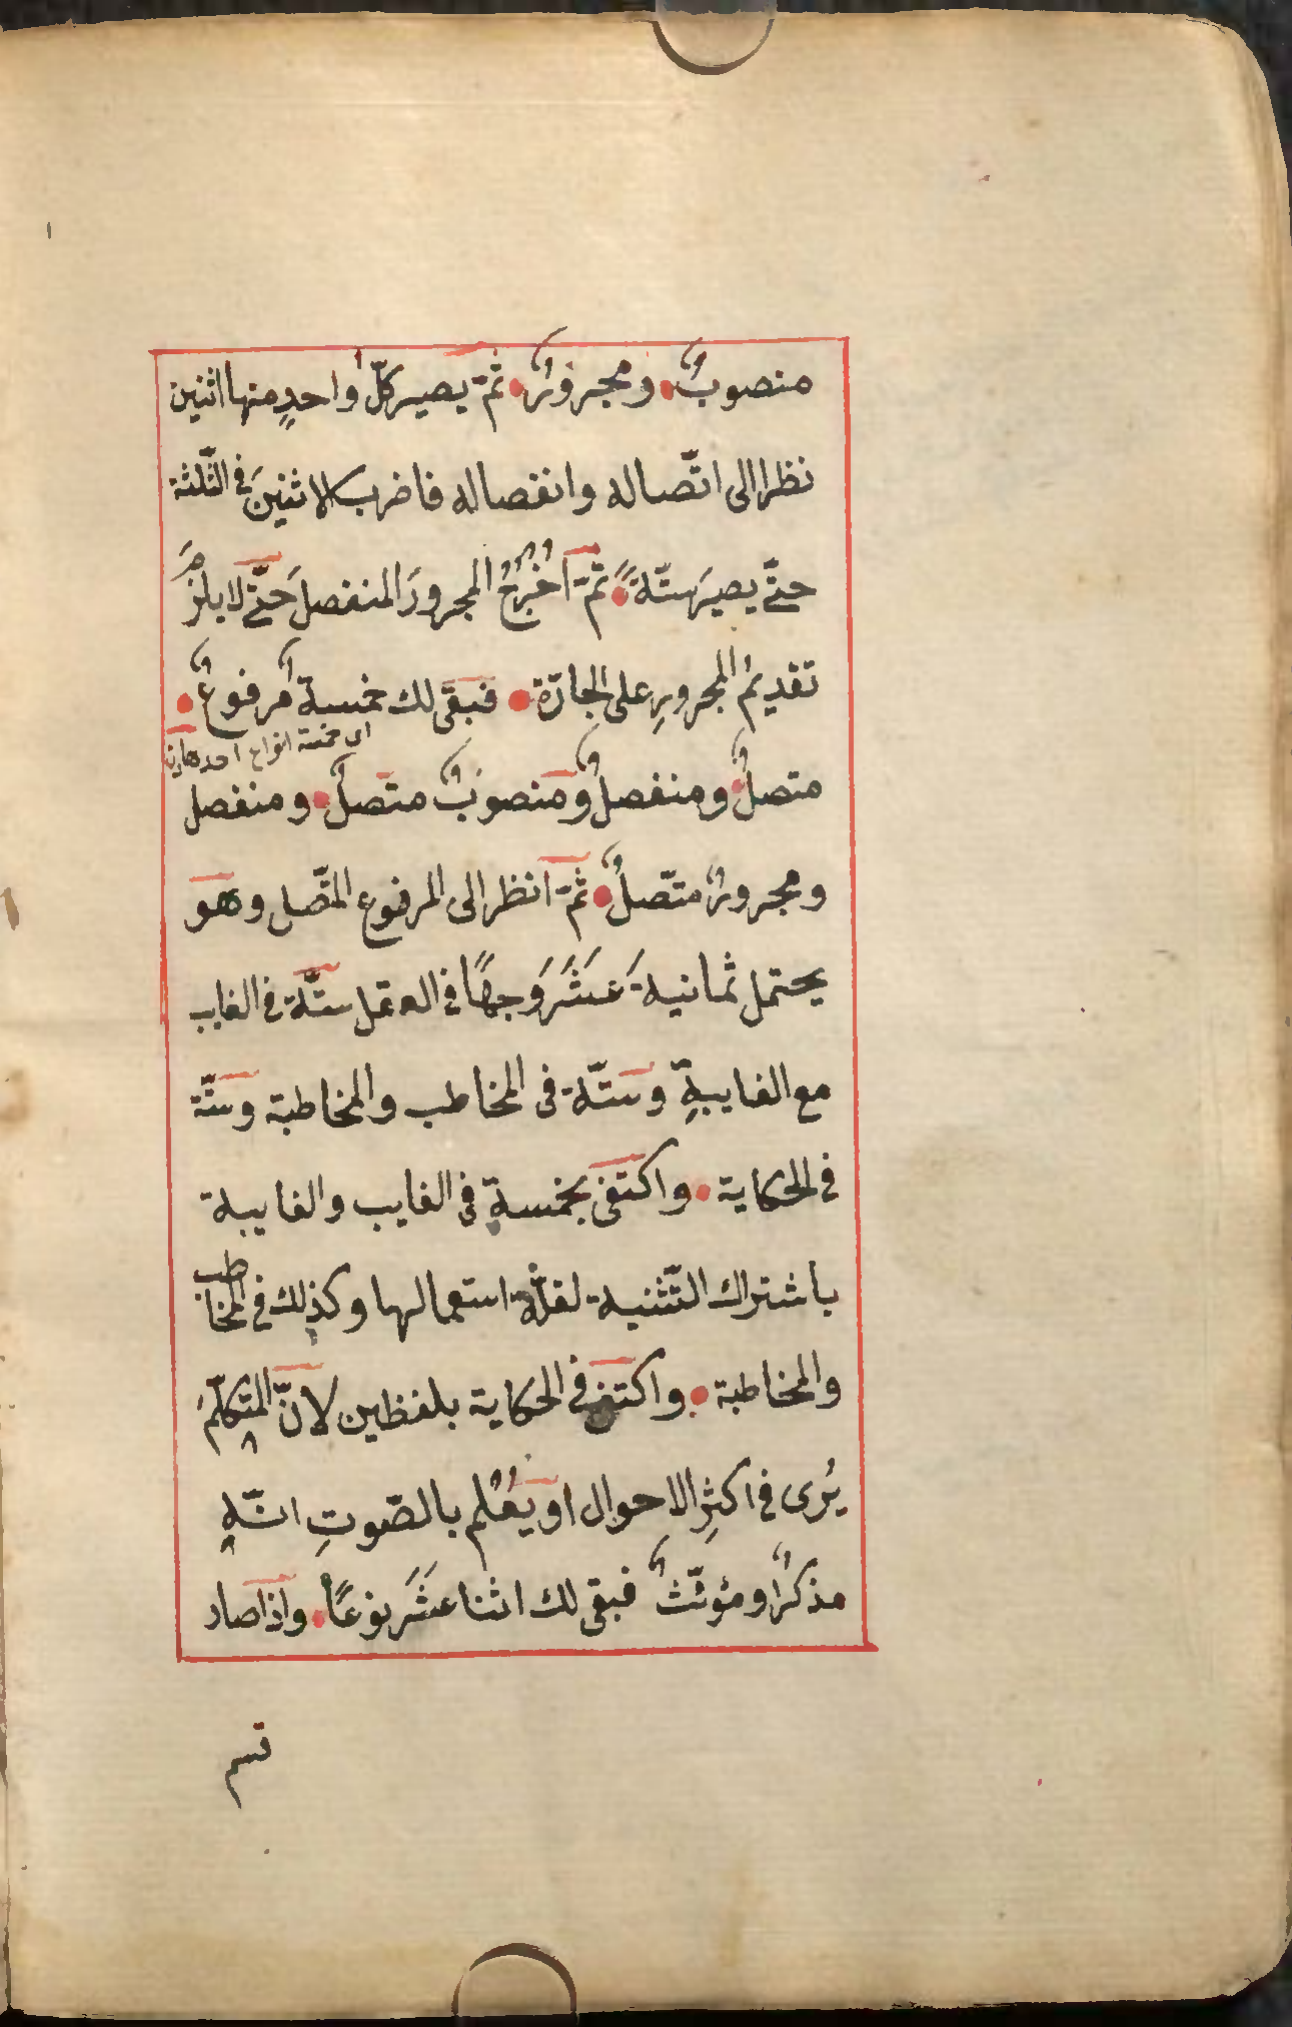 منصوبٌ ومجرورٌ ثمّ يصير كلّ واحدٍ منها اثنين
نظرا الى اتّصاله وانفصاله فاضرب الاثنينَ فى الثّلثة
حتّى يصير ستّة ثمّ اَخْرِجْ المجرورَ المنفصلَ حَتّى لا يلزمَ
تقديمُ المجرورِ على الجارّة فبقى لك خمسة مرفوعٌ
اى خمسة انواع احدها
متصلٌ ومنفصلٌ ومنصوبٌ متّصلٌ ومنفصل
ومجرورٌ متّصلٌ ثمّ انظر الى المرفوع المتّصل وهو
يحتمل ثمانيةَ عَشَرَ وَجهًا فى العقل ستّة فى الغايب
مع الغايبةِ وستّة فى المخاطب والمخاطبة وستّة
فى الحكاية واكتفى بخمسةٍ فى الغايب والغايبة
باشتراك التّثنية لقلّة استعمالها وكذلك فى المخاطب
والمخاطبة واكتفى فى الحكاية بلفظين لانّ المتكلّمَ
يُرى فى اكثرِ الاحوال او يُعْلم بالصّوتِ انّه
مذكرٌ او مؤنّثٌ فبقى لك اثنا عَشَرَ نوعًا واذا صار
قسم